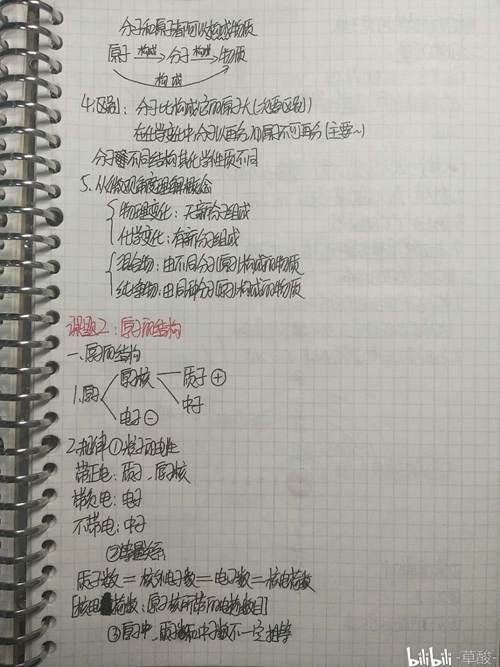 分子和原子都可以构成物质
原子 构成 分子 构成 物质
构成
4.区别：分子比构成它的原子大(次要区别)
在化学变化中分子可再分,而原子不可再分(主要~)
分子不同结构其化学性质不同
5.从微观角度理解概念
物理变化：无新分子组成
化学变化：有新分子组成
混合物：由不同分子(原子)构成的物质
纯净物：由同种分子(原子)构成的物质
课题2：原子的结构
一.原子的结构
1.原子
原子核 质子⊕
中子
电子⊖
2.规律①粒子的电性
带正电：质子、原子核
带负电：电子
不带电：中子
②等量关系
质子数=核外电子数=电子数=核电荷数
[核电荷数：原子核所带的电荷数目]
③原子中,质子数和中子数不一定相等
bilibili -草酸-